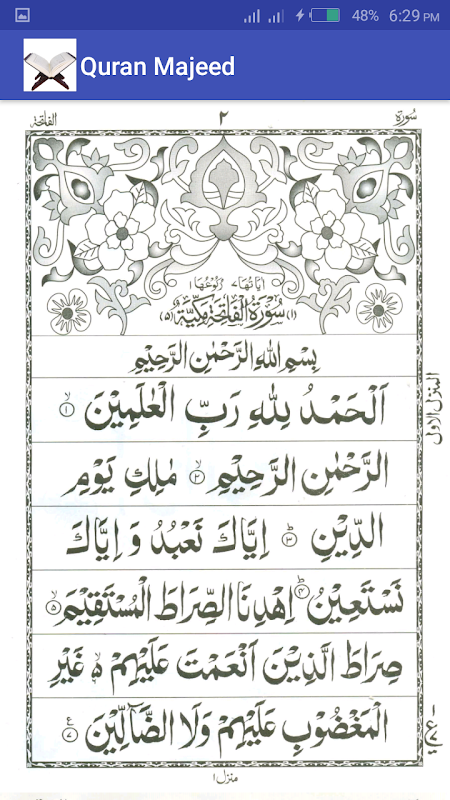 48% 6:29 PM
Quran Majeed
سورة ٢ الفاتحة
اٰيَاتُهَا ٧ رُكُوْعُهَا ١
(١) سُوْرَةُ الْفَاتِحَةِ مَكِّيَّةٌ (٥)
بِسْمِ اللهِ الرَّحْمٰنِ الرَّحِيْمِ
اَلْحَمْدُ لِلّٰهِ رَبِّ الْعٰلَمِيْنَ ۙ﴿١﴾
الرَّحْمٰنِ الرَّحِيْمِ ۙ﴿٢﴾ مٰلِكِ يَوْمِ
الدِّيْنِ ؕ﴿٣﴾ اِيَّاكَ نَعْبُدُ وَ اِيَّاكَ
نَسْتَعِيْنُ ؕ﴿٤﴾ اِهْدِنَا الصِّرَاطَ الْمُسْتَقِيْمَ ۙ﴿٥﴾
صِرَاطَ الَّذِيْنَ اَنْعَمْتَ عَلَيْهِمْ ۙ۬ غَيْرِ
الْمَغْضُوْبِ عَلَيْهِمْ وَلَا الضَّآلِّيْنَ ﴿٧﴾ ع
المنزل الاول
منزل ١